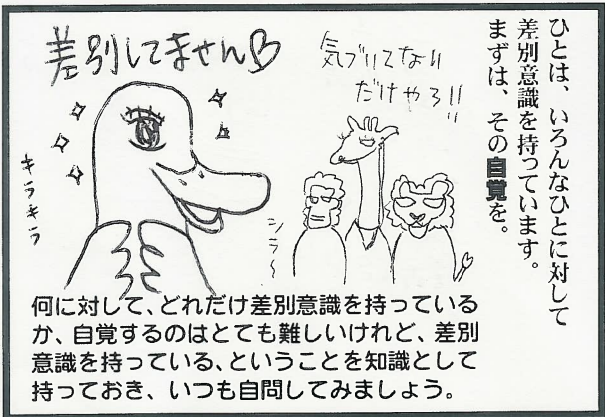 ひとは、いろんなひとに対して
差別意識を持っています。
まずは、その自覚を。
気づいてない
だけやろ!!
差別してません♡
キラキラ
シラ〜
何に対して、どれだけ差別意識を持っている
か、自覚するのはとても難しいけれど、差別
意識を持っている、ということを知識として
持っておき、いつも自問してみましょう。